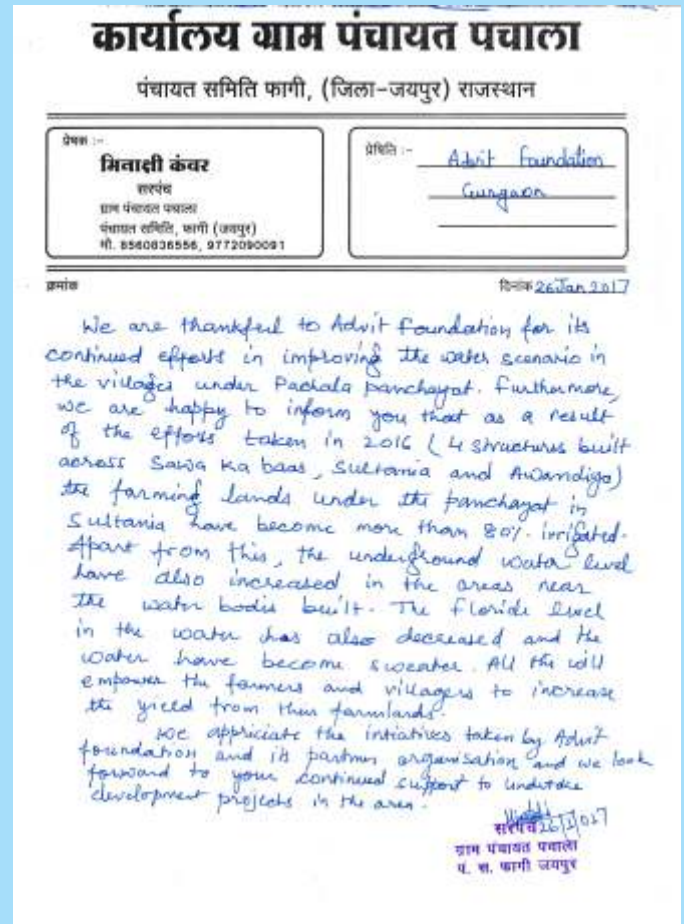 कार्यालय ग्राम पंचायत पचाला
पंचायत समिति फागी, (जिला-जयपुर) राजस्थान
प्रेषक :-
मिनाक्षी कंवर
सरपंच
ग्राम पंचायत पचाला
पंचायत समिति, फागी (जयपुर)
मो. 8560836556, 9772090091
प्रेषिति :- Advit Foundation
Gurgaon
क्रमांक
दिनांक 26 Jan 2017
We are thankful to Advit Foundation for its
continued efforts in improving the water scenario in
the villages under Pachala panchayat. Furthermore,
we are happy to inform you that as a result
of the efforts taken in 2016 (4 structures built
across Sawa Ka baas, Sultania and Awandiya)
the farming lands under the panchayat in
Sultania have become more than 80% irrigated.
Apart from this, the underground water level
have also increased in the areas near
the water bodis built. The floride level
in the water has also decreased and the
water have become sweater. All the will
empower the farmers and villagers to increase
the yield from their farmlands.
We appriciate the intiatives taken by Advit
foundation and its partner organisation and we look
forward to your continued support to undertake
development projects in the area.
सरपंच 26/1/017
ग्राम पंचायत पचाला
पं. स. फागी जयपुर